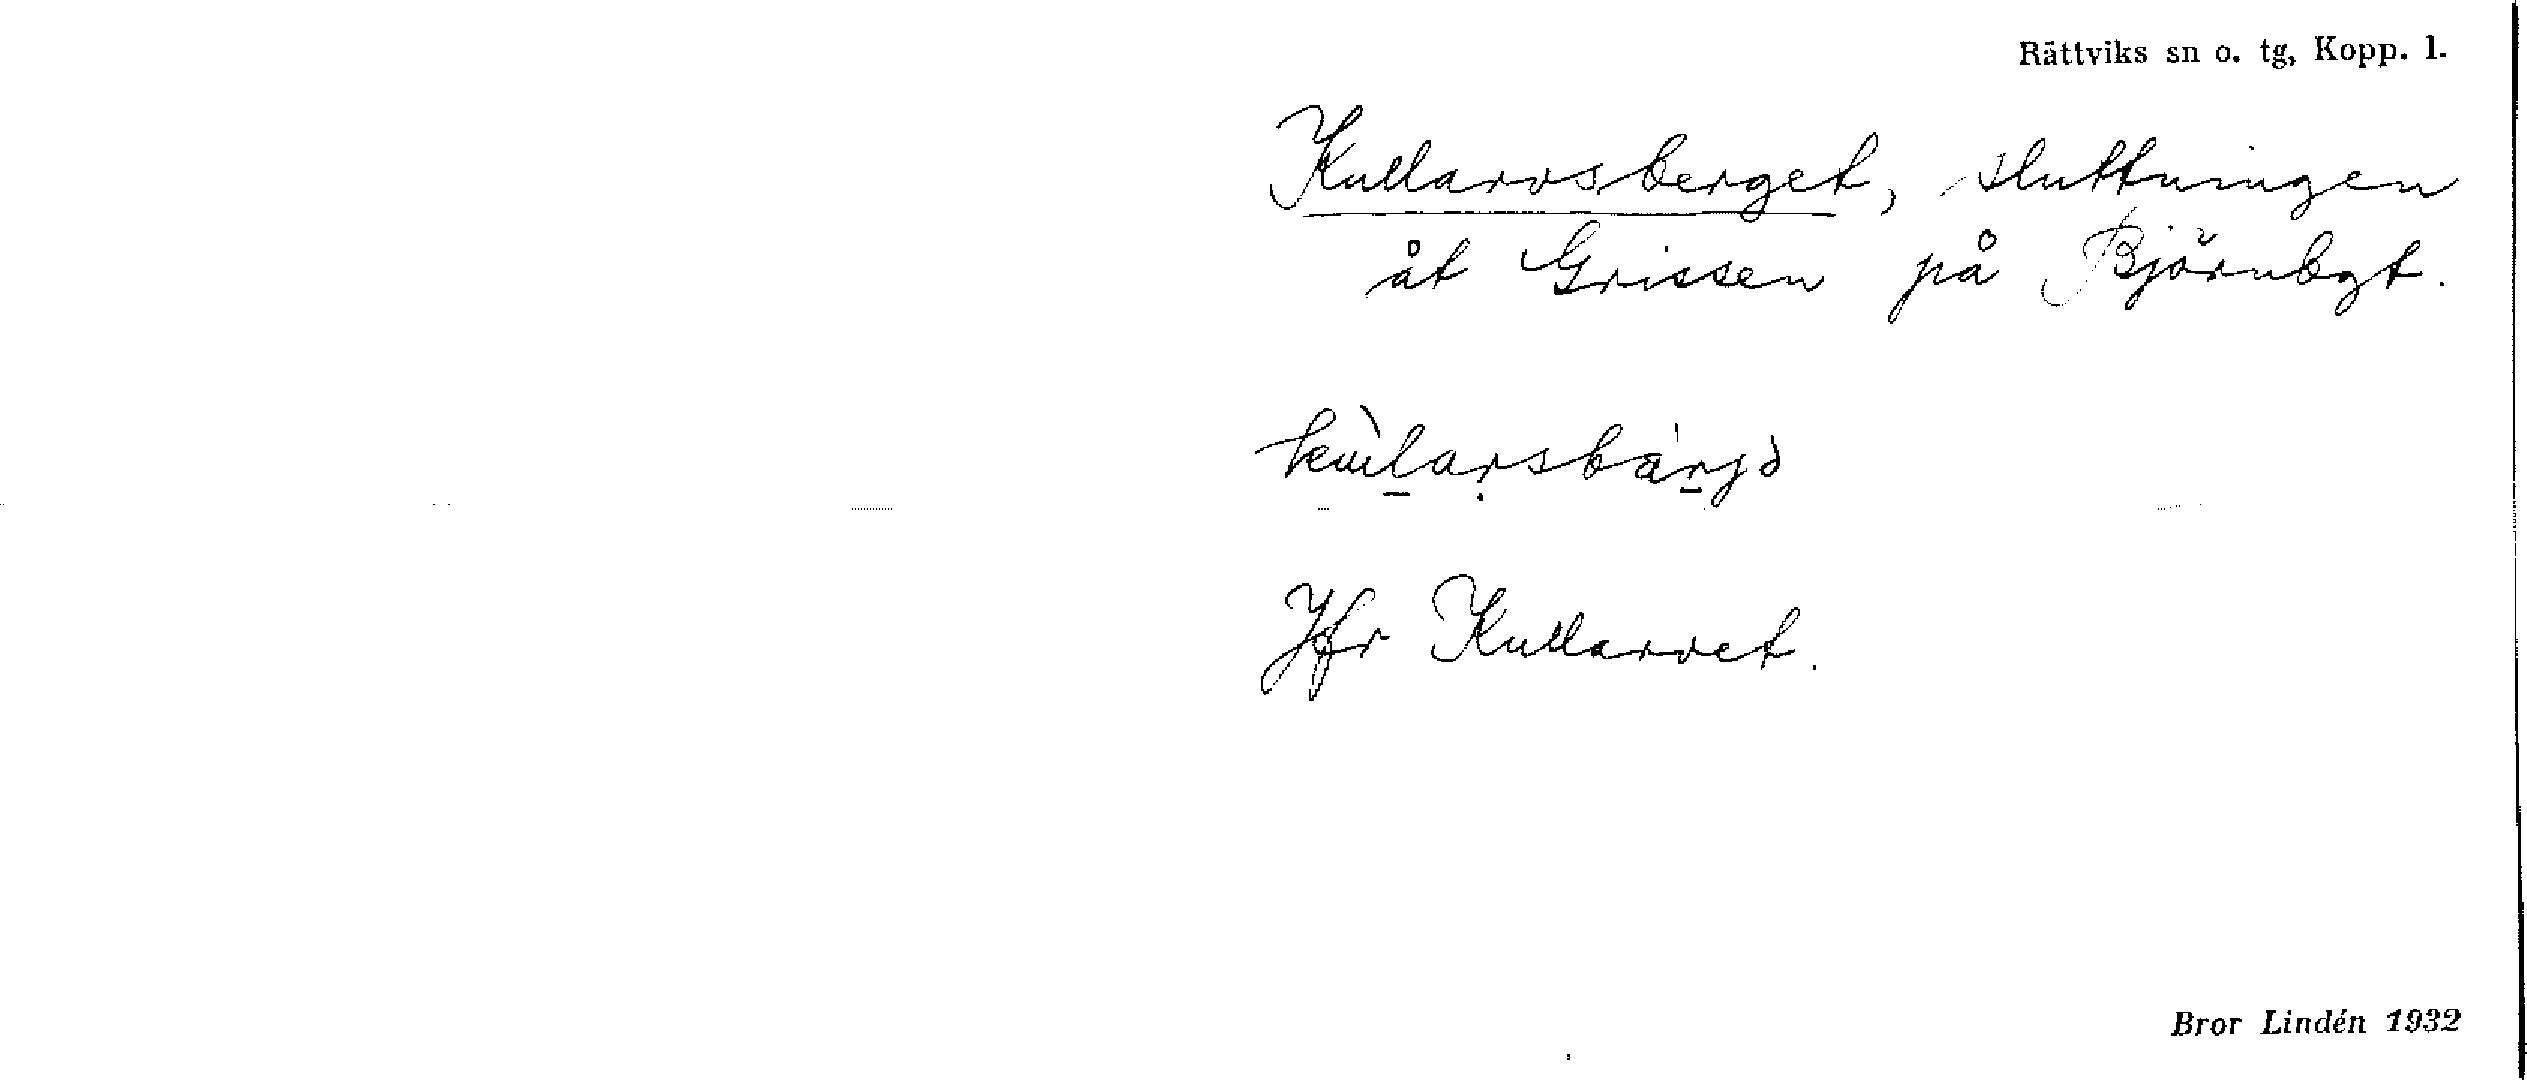 Rättviks sn o. tg, Kopp. l.
Kullarvsberget, sluttningen
åt Grissen på Björnbgt.
Jfr Kullarvet.
Bror Lindén 1932